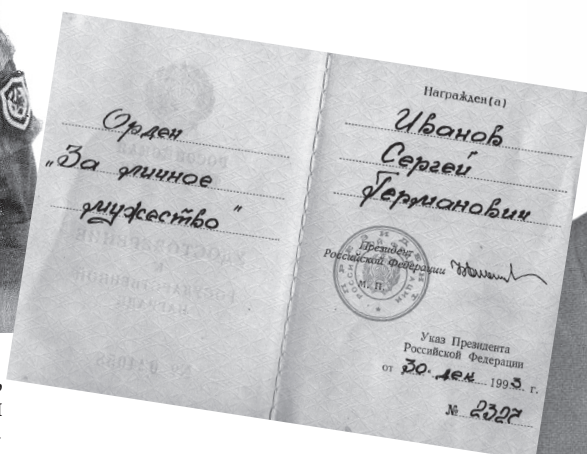 Орден
„За личное
мужество"
Награжден(а)
Иванов
Сергей
Германович
Президент
Российской Федерации
М. П.
Указ Президента
Российской Федерации
от 30. дек. 1993 г.
№ 2327